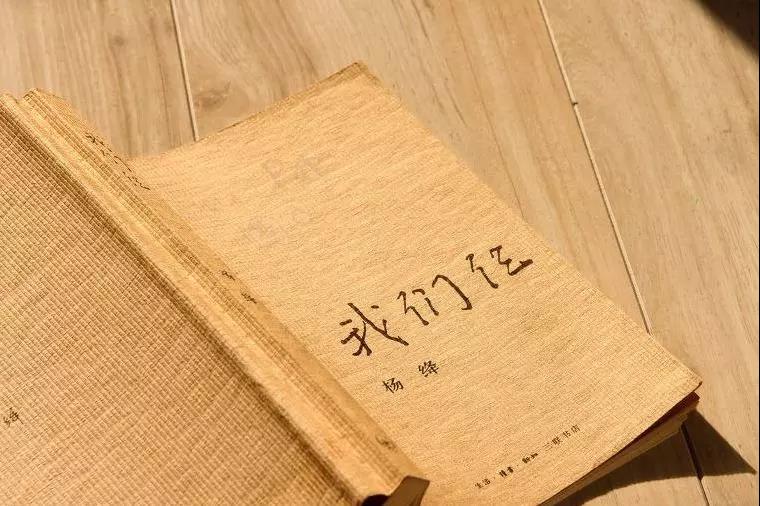 我们仨
杨绛
生活·读书·新知 三联书店
我们仨
杨绛
绛